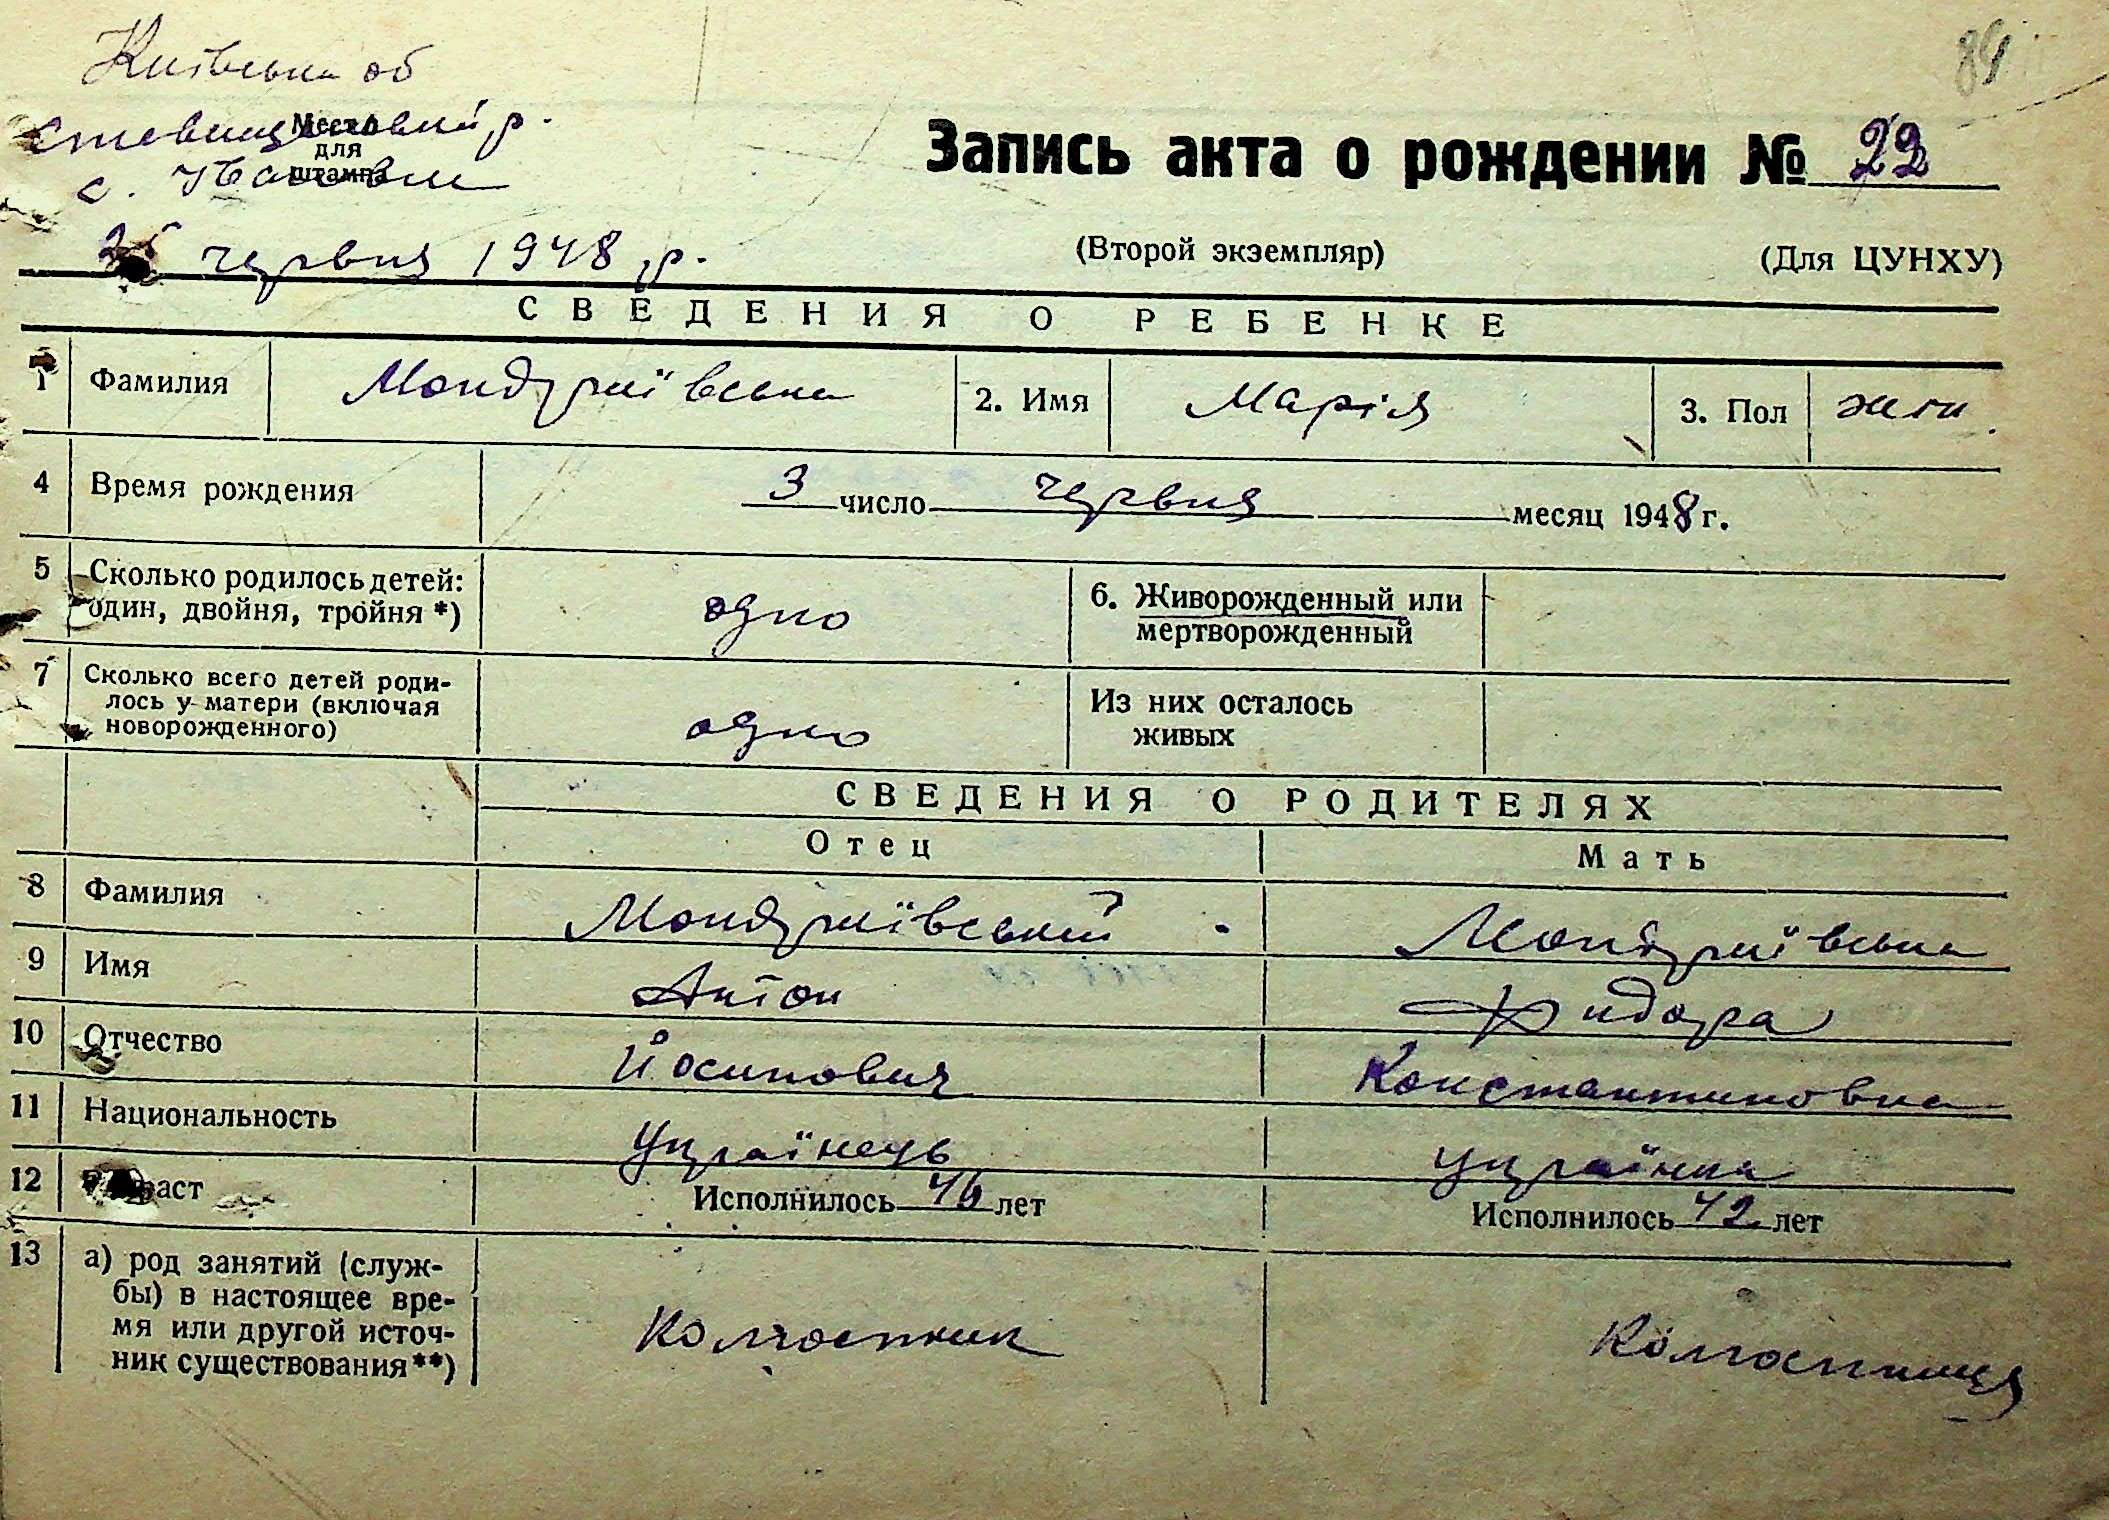 84
Київська об
ставищанський р.
Место
для
штампа
с. Іванівка
Запись акта о рождении № 22
25 червня 1948 р.
(Второй экземпляр)
(Для ЦУНХУ)
СВЕДЕНИЯ О РЕБЕНКЕ
1 Фамилия Мондриївська 2. Имя Марія 3. Пол жін.
4 Время рождения 3 число червня месяц 1948 г.
5 Сколько родилось детей: один, двойня, тройня *) одно 6. Живорожденный или мертворожденный
7 Сколько всего детей роди-
лось у матери (включая
новорожденного) одно Из них осталось
живых
СВЕДЕНИЯ О РОДИТЕЛЯХ
Отец Мать
8 Фамилия Мондриївський Мондриївська
9 Имя Антон Фидора
10 Отчество Йосипович Константиновна
11 Национальность українець українка
12 Исполнилось 46 лет Исполнилось 42 лет
13 а) род занятий (служ-
бы) в настоящее вре-
мя или другой источ-
ник существования**) Колгоспник Колгоспниця